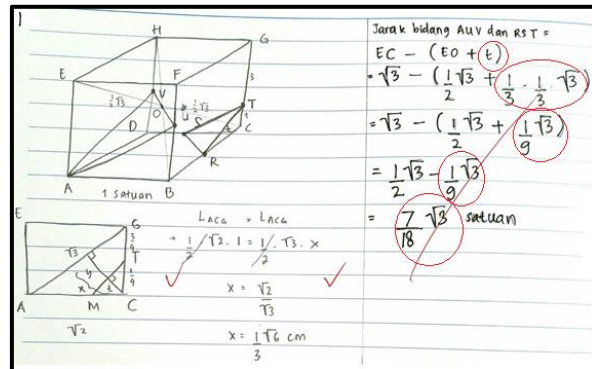 1
H
G
E
F
3
½√3
V
T
½√3
U
S
1
O
D
t
C
R
A
B
1 satuan
E
G
3/4
T
√3
y
1/4
x
t
A
M
C
√2
L ACG = L ACG
→ 1/2 √2 . 1 = 1/2 . √3 . x
x = √2/√3
x = 1/3 √6 cm
Jarak bidang AUV dan RST =
EC - (EO + t)
= √3 - (1/2 √3 + 1/3 . 1/3 . √3)
= √3 - (1/2 √3 + 1/9 √3)
= 1/2 √3 - 1/9 √3
= 7/18 √3 satuan